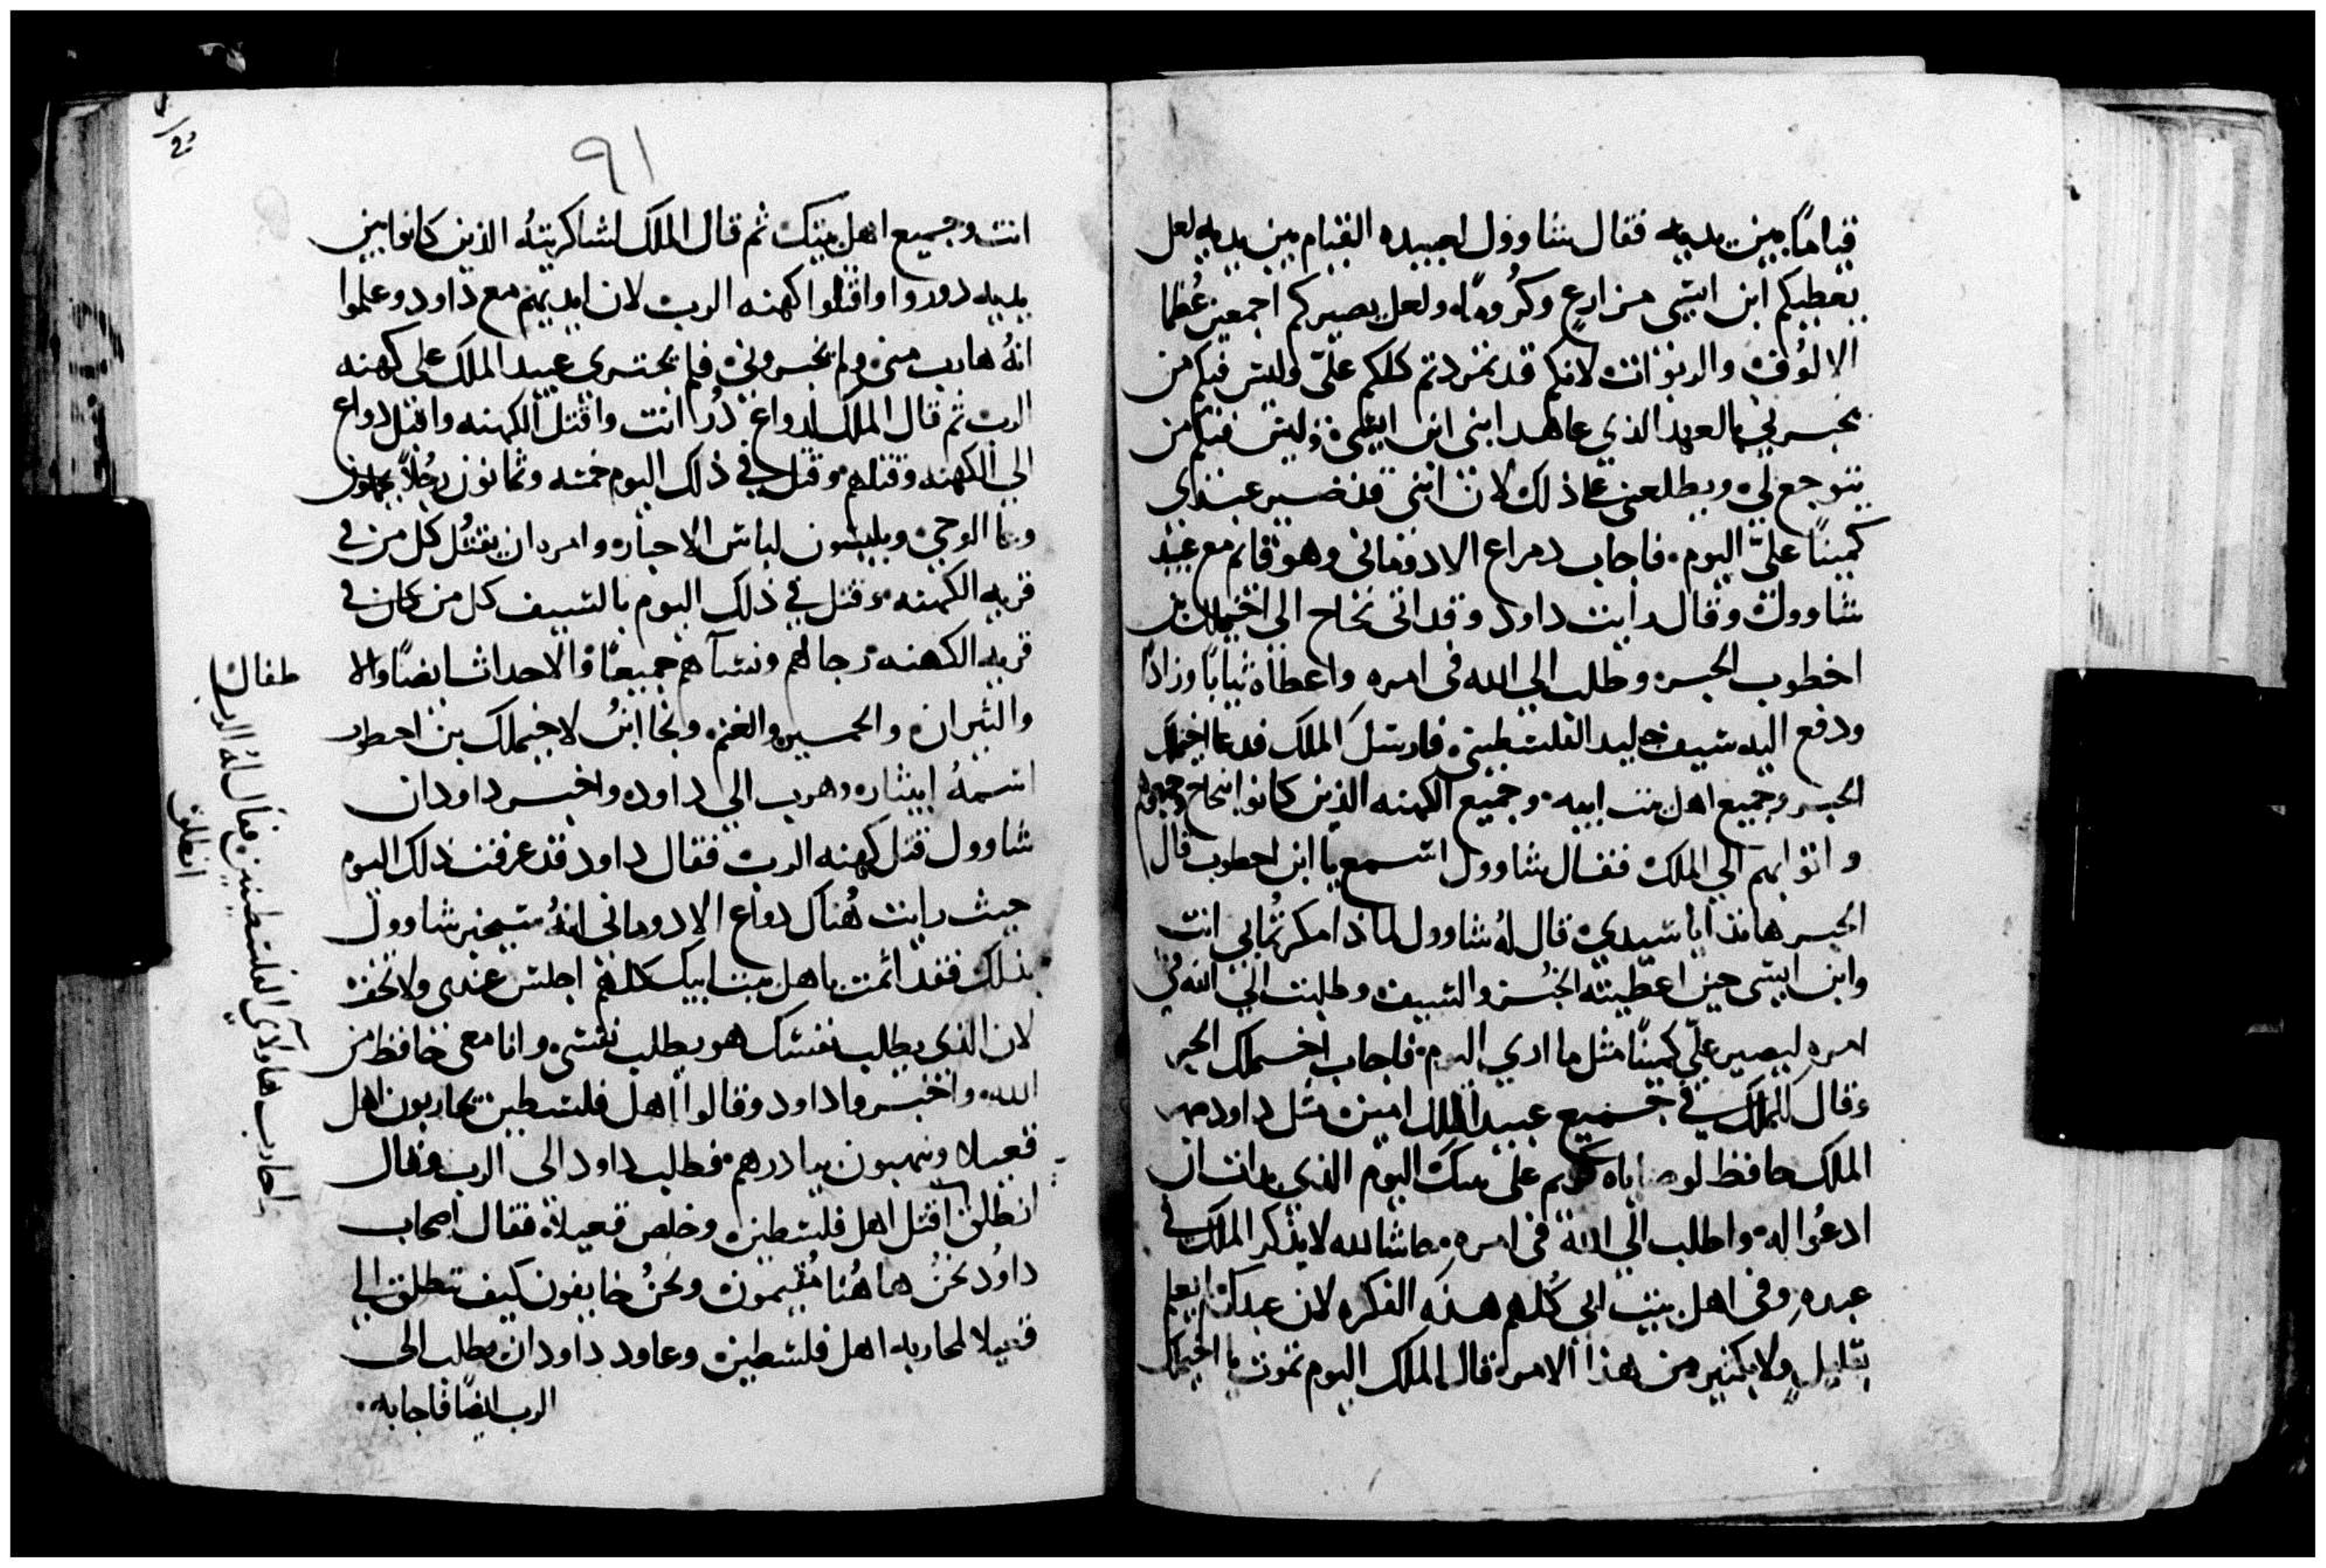 قياماً بين يديه فقال شاوول لعبيده القيام بين يديه لعل
يعطيكم ابن ايشى مزارع وكرومًا ولعل يصيركم اجمعين عُظما
الالوُف والربوات لانكم قد تمردتم كلكم عليّ وليس فيكم من
يخبرني بالعهد الذي عاهد ابنى ابن ايشى وليس فيكم من
يتوجع لي ويطلعنى على ذلك لان ابنى قد صير عبدى
كمينًا عليّ اليوم فاجاب دراع الادومانى وهو قايم مع عبيد
شاوول وقال رايت داود وقد اتى نجاح الى اخيملك بن
اخطوب الحبر وطلب الي الله فى امره واعطاه ثيابًا وزادًا
ودفع اليه سيف جوليد الفلسطينى فارسل الملك فدعا اخيملك
الحبر وجميع اهل بيت ابيه وجميع الكهنه الذين كانوا بنجاح
واتوا بهم الي الملك فقال شاوول اسمع يا ابن احطوب قال
الحبر هانذا يا سيدي قال لهُ شاوول لماذا مكرتُما بي انت
وابن ايشى حين اعطيته الخُبز والسيف وطلبت الي الله في
امره ليصير عليّ كمينًا مثل ما ارى اليوم فاجاب اخيملك الحبر
وقال للملك في جميع عبيد الملك امين مثل داود صهر
الملك حافظ لوصاياه كريم على بيتك اليوم الذي بدات ان
ادعُوا له واطلب الي الله فى امره حاشا لله لا يذكر الملك في
عبده وفى اهل بيت ابى كُلهم هذه الفكره لان عبدك لم يعلم
بقليل ولا بكثير من هذا الامر قال الملك اليوم تموت يا اخيملك
٩١
انت وجميع اهل بيتك ثم قال الملك لشاكريتهُ الذين كانوا بين
يديه دوروا واقتلوا كهنه الرب لان ايديهم مع داود وعلموا
انهُ هارب منى ولم يخبرونى فلم يجترى عبيد الملك على كهنه
الرب ثم قال الملك لدواع دُر انت واقتل الكهنه واقبل دواع
الى الكهنه وقتلهم وقتل في ذلك اليوم خمسه وثمانون رجُلاً يحملون
وعا الوحي ويلبسون لباس الاحبار وامر ان يقتُل كل من في
قريه الكهنه وقتل في ذلك اليوم بالسيف كل من كان في
قريه الكهنه رجالهم ونسآهم جميعًا والاحداث ايضًا والا
طفال
والثيران والحمير والغنم ونجا ابنُ لاخيملك بن احطوب
اسمهُ ابيثار وهرب الي داود واخبر داود ان
شاوول قتل كهنه الرب فقال داود قد عرفت ذلك اليوم
حيث رايت هُناك دواع الادومانى انهُ سيخبر شاوول
بذلك فقد اثمت باهل بيت ابيك كلهم اجلس عندى ولا تخف
لان الذى يطلب نفسك هو يطلب نفسى وانا معى حافظ من
الله واخبروا داود وقالوا اهل فلسطين يحاربون اهل
قعيلا وينهبون بيادرهم فطلب داود الى الرب وقال
احارب هاولاى الفلسطينين فقال لهُ الرب
انطلق
انطلق اقتل اهل فلسطين وخلص قعيلا فقال اصحاب
داوُد نحنُ هاهُنا مُقيمون ونحنُ خايفون كيف تنطلق الي
قعيلا لمحاربه اهل فلسطين وعاود داود ان يطلب الى
الرب ايضًا فاجابه